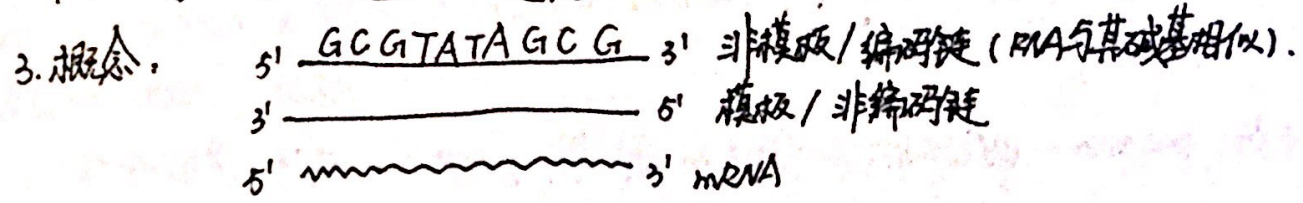 3.概念：5' GCGTATAGCG 3' 非模板/编码链(RNA与其碱基相似).
3' 5' 模板/非编码链
5' 3' mRNA